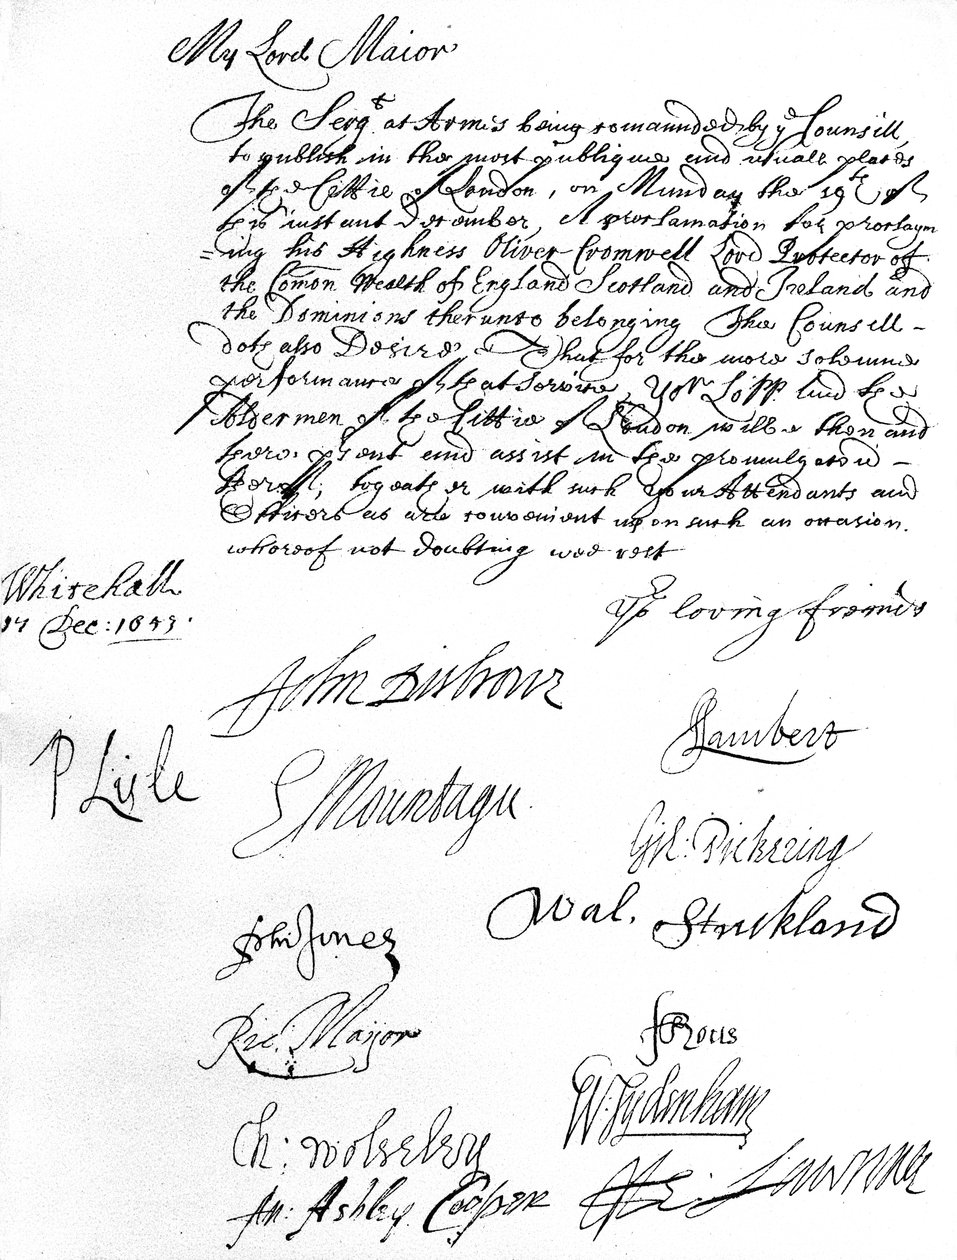 My Lord Maior
The Sergt at Armes being comaunded by ye Counsill,
to publish in the most publique and usuall places
of the Cittie of London, on Munday the 19th of
this instant December, A proclamation for proclaym
=ing his Highness Oliver Cromwell Lord Protector of
the Comon Wealth of England Scotland and Ireland and
the Dominions therunto belonging The Counsill -
doth also Desire, That for the more solemne
performance of that service, Yor Lopp and the
Aldermen of the Cittie of London will be then and
there psent and assist in the promulgatio -
therof, togeather with such your Attendants and
Officers as are convenient upon such an occasion.
whereof not doubting wee rest
Whitehall
17 Dec: 1653.
Yor loving freinds
John Disbrowe
Lambert
P Lisle
E Mountagu
Gil: Pickering
Wal. Strickland
Phi Jones
Ric: Maijor
F Rous
W: Sydenham
Ch: Wolseley
An: Ashley Cooper
He: Lawrence